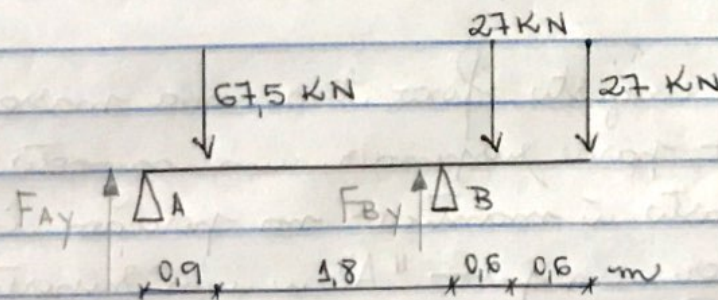 27KN
67,5 KN
27 KN
FAy
A
FBy
B
0,9
1,8
0,6
0,6
m